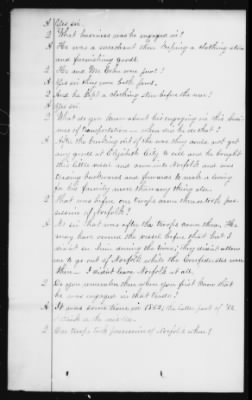 A Yes sir.
Q What business was he engaged in?
A He was a merchant then keeping a clothing store
and furnishing goods.
Q He and Mr Cohn were Jews?
A Yes sir they were both Jews.
Q And he kept a clothing store before the war?
A Yes sir.
Q What do you know about his engaging in this busi-
ness of transportation - when did he do that?
A After the breaking out of the war they could not get
any goods at Elizabeth City to sell and he bought
this little vessel and came into Norfolk and went
trading backwards and forwards to make a living
for his family more than any thing else.
Q That was before our troops came there & took pos-
session of Norfolk?
A No sir that was after the troops came there. He
may have owned the vessel before that but I
didn't see him during the time; they didn't allow
me to go out of Norfolk while the Confederates were
there - I didn't leave Norfolk at all.
Q Do you remember then when you first knew that
he was engaged in that trade?
A It was some time in 1862, the latter part of '62
I think or the middle.
Q Our troops took possession of Norfolk when?